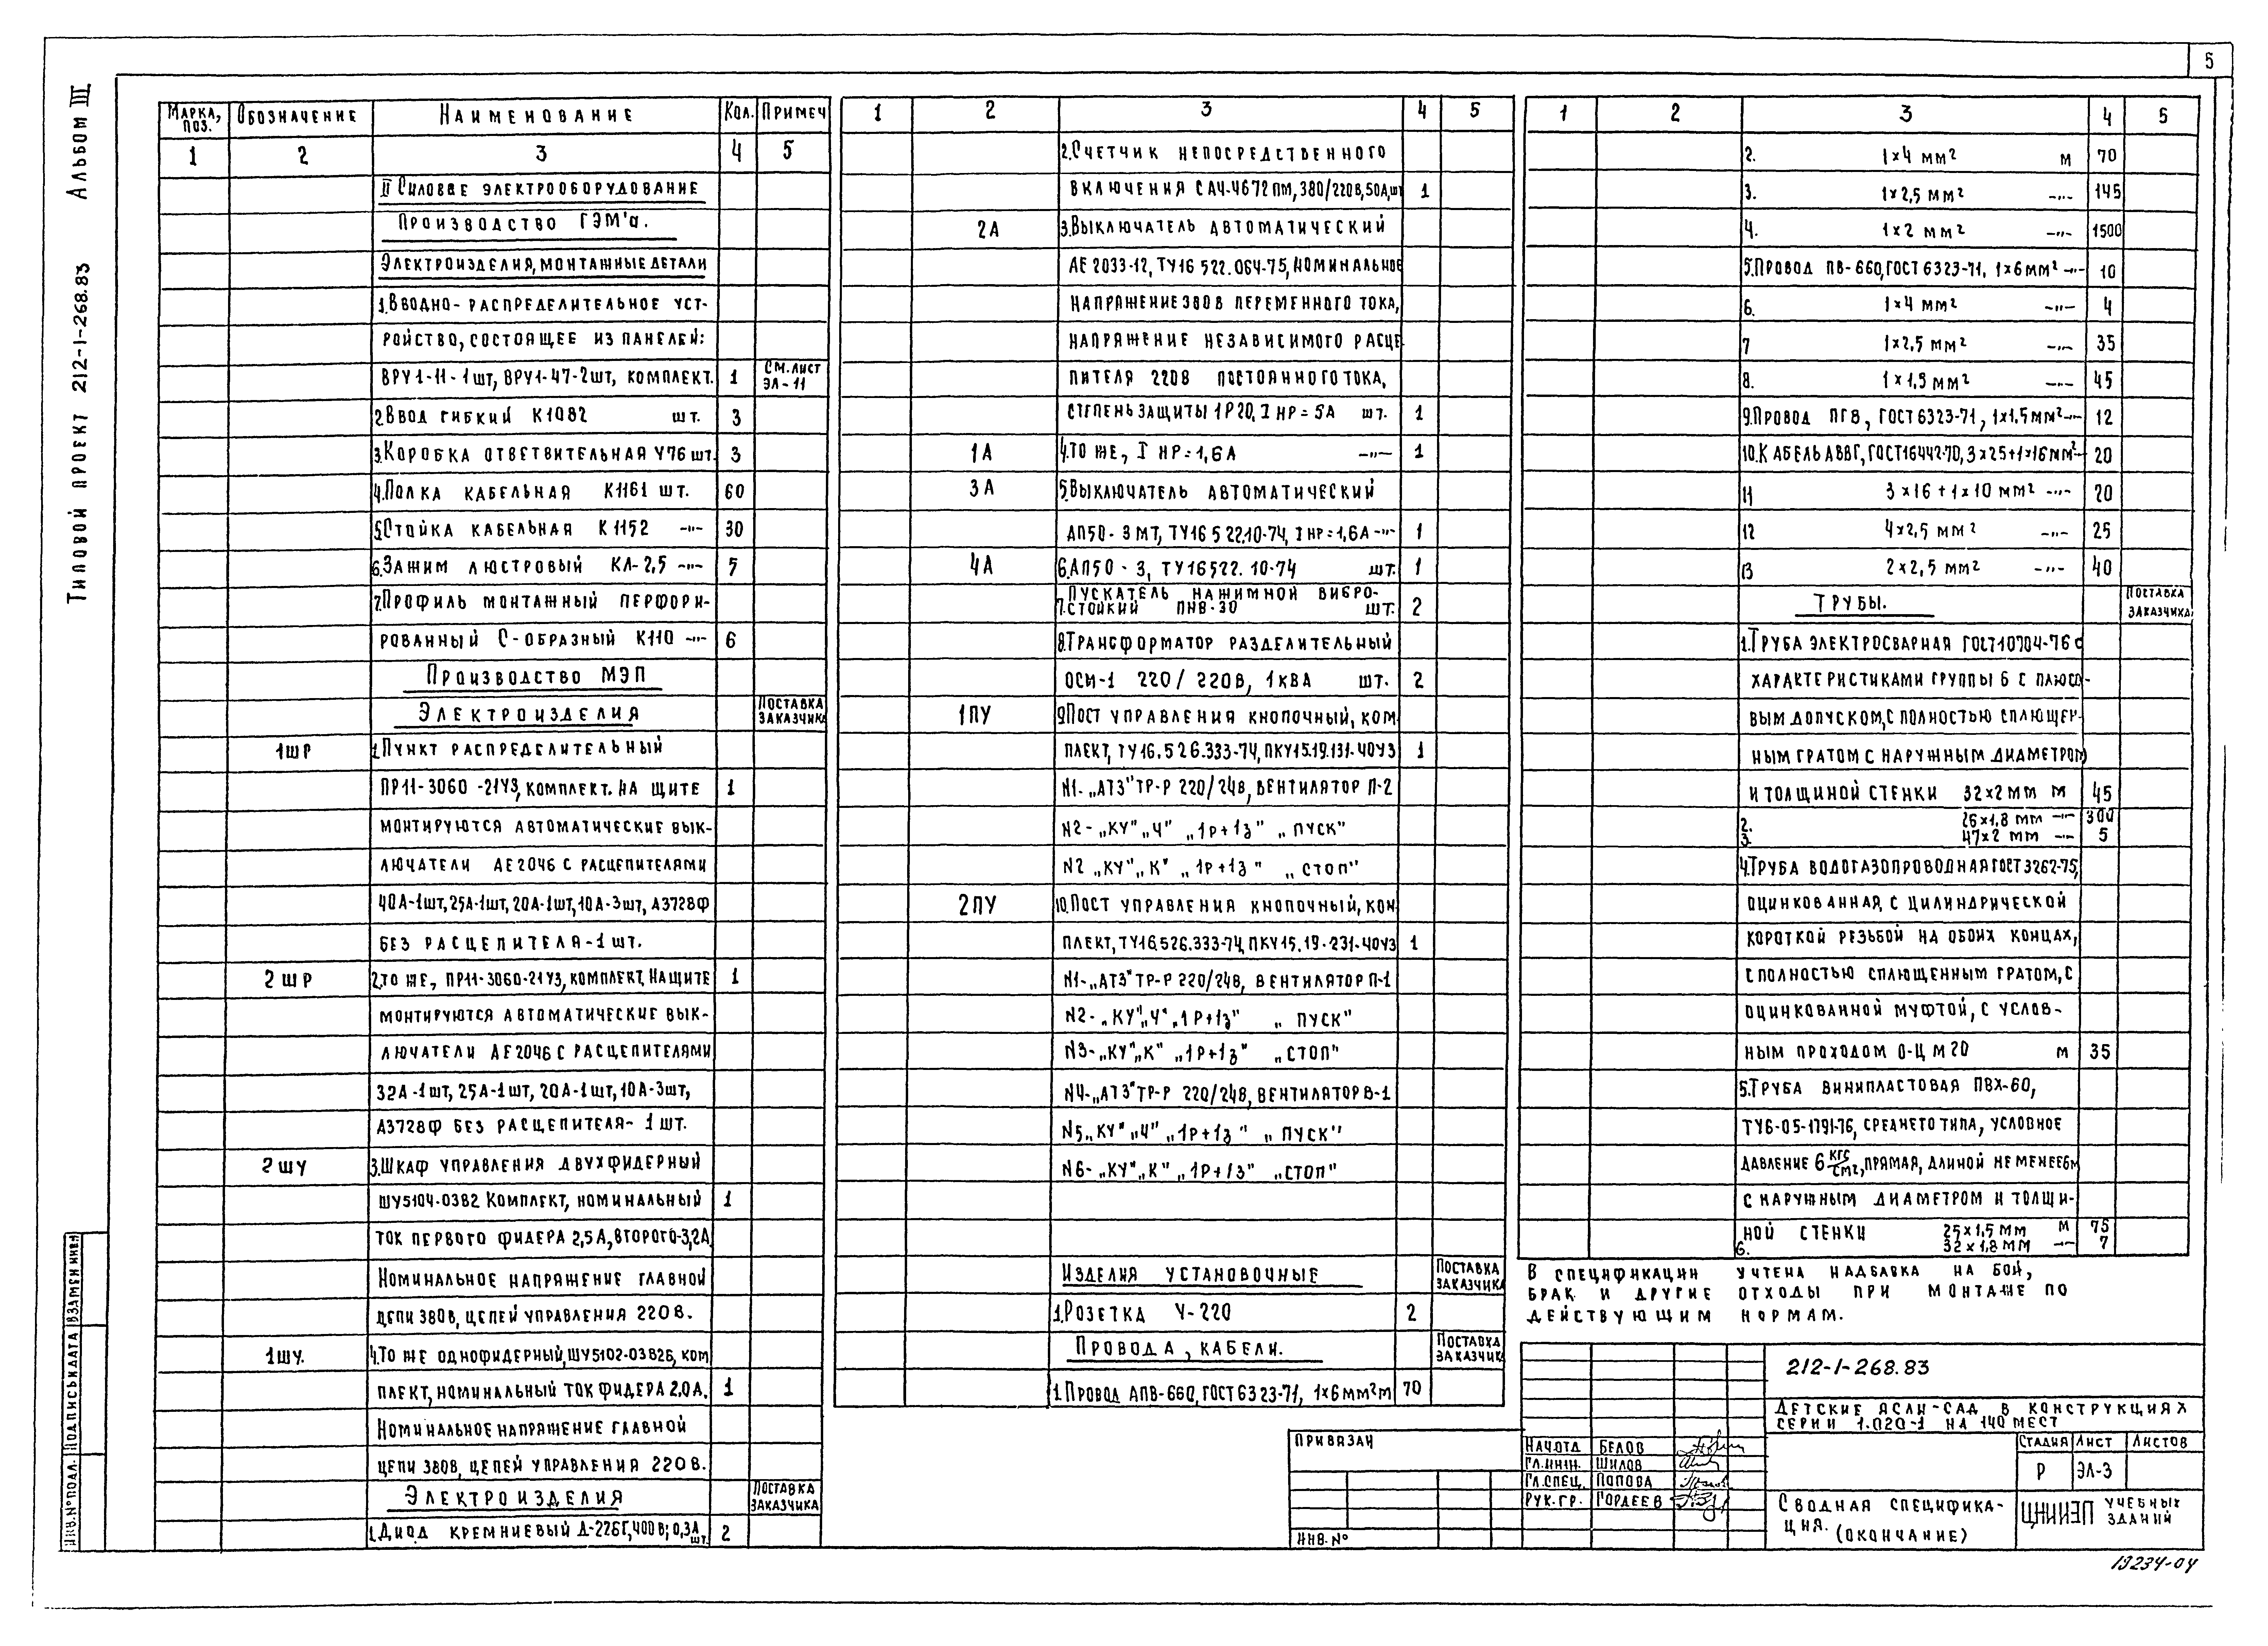 5
Альбом III
Типовой проект 212-1-268.83
Марка, поз. Обозначение Наименование Кол. Примеч
1 2 3 4 5
II Силовое электрооборудование
Производство ГЭМ'а.
Электроизделия, монтажные детали
1. Вводно-распределительное уст-
ройство, состоящее из панелей:
ВРУ1-11-1шт, ВРУ1-47-2шт, комплект. 1 См. лист ЭЛ-11
2. Ввод гибкий К1082 шт. 3
3. Коробка ответвительная У76 шт. 3
4. Полка кабельная К1161 шт. 60
5. Стойка кабельная К1152 -"- 30
6. Зажим люстровый КЛ-2,5 -"- 5
7. Профиль монтажный перфори-
рованный С-образный К110 -"- 6
Производство МЭП
Электроизделия Поставка заказчика
1ШР 1. Пункт распределительный
ПР11-3060-21У3, комплект. На щите 1
монтируются автоматические вык-
лючатели АЕ2046 с расцепителями
40А-1шт, 25А-1шт, 20А-1шт, 10А-3шт, А3728Ф
без расцепителя-1шт.
2ШР 2. То же, ПР11-3060-21У3, комплект, на щите 1
монтируются автоматические вык-
лючатели АЕ2046 с расцепителями
32А-1шт, 25А-1шт, 20А-1шт, 10А-3шт,
А3728Ф без расцепителя- 1шт.
2ШУ 3. Шкаф управления двухфидерный
ШУ5104-03В2 Комплект, номинальный 1
ток первого фидера 2,5А, второго-3,2А.
Номинальное напряжение главной
цепи 380В, цепей управления 220В.
1ШУ. 4. То же однофидерный, ШУ5102-03В2Б, ком
плект, номинальный ток фидера 2,0А. 1
Номинальное напряжение главной
цепи 380В, цепей управления 220В.
Электроизделия Поставка заказчика
1. Диод кремниевый Д-226Г, 400В; 0,3А шт. 2
1 2 3 4 5
2. Счетчик непосредственного
включения САЧ-4672ПМ, 380/220В, 50А, шт 1
2А 3. Выключатель автоматический
АЕ2033-12, ТУ16 522.064-75, номинальное
напряжение 380В переменного тока,
напряжение независимого расце
пителя 220В постоянного тока,
степень защиты 1Р20, I нр = 5А шт. 1
1А 4. То же, I нр = 1,6А -"- 1
3А 5. Выключатель автоматический
АП50-3МТ, ТУ16 522.10-74, I нр = 1,6А -"- 1
4А 6. АП50-3, ТУ16522.10-74 шт. 1
7. Пускатель нажимной вибро-
стойкий ПНВ-30 шт. 2
8. Трансформатор разделительный
ОСМ-1 220/220В, 1кВА шт. 2
1ПУ 9. Пост управления кнопочный, ком
плект, ТУ16.526.333-74, ПКУ15.19.131-40У3 1
N1-„АТ3" ТР-Р 220/24В, вентилятор П-2
N2-„КУ" „Ч" „1р+1з" „пуск"
N2 „КУ" „К" „1р+1з" „стоп"
2ПУ 10. Пост управления кнопочный, ком
плект, ТУ16.526.333-74, ПКУ15.19-231-40У3 1
N1-„АТ3" ТР-Р 220/24В, вентилятор П-1
N2-„КУ" „Ч" „1р+1з" „пуск"
N3-„КУ" „К" „1р+1з" „стоп"
N4-„АТ3" ТР-Р 220/24В, вентилятор В-1
N5 „КУ" „Ч" „1р+1з" „пуск"
N6-„КУ" „К" „1р+1з" „стоп"
Изделия установочные Поставка заказчика
1. Розетка У-220 2
Провода, кабели. Поставка заказчик
1. Провод АПВ-660, ГОСТ 6323-71, 1×6 мм² м 70
1 2 3 4 5
2. 1×4 мм² м 70
3. 1×2,5 мм² -"- 145
4. 1×2 мм² -"- 1500
5. Провод ПВ-660, ГОСТ 6323-71, 1×6мм² -"- 10
6. 1×4 мм² -"- 4
7 1×2,5 мм² -"- 35
8. 1×1,5 мм² -"- 45
9. Провод ПГВ, ГОСТ 6323-71, 1×1,5мм² -"- 12
10. Кабель АВВГ, ГОСТ16442-70, 3×25+1×16мм² -"- 20
11 3×16+1×10 мм² -"- 20
12 4×2,5 мм² -"- 25
13 2×2,5 мм² -"- 40
Трубы. Поставка заказчика
1. Труба электросварная ГОСТ10704-76 с
характеристиками группы Б с плюсо-
вым допуском, с полностью сплющен-
ным гратом с наружным диаметром
и толщиной стенки 32×2 мм м 45
2. 26×1,8 мм -"- 300
3. 47×2 мм -"- 5
4. Труба водогазопроводная ГОСТ 3262-75,
оцинкованная, с цилиндрической
короткой резьбой на обоих концах,
с полностью сплющенным гратом, с
оцинкованной муфтой, с услов-
ным проходом О-Ц М20 м 35
5. Труба винипластовая ПВХ-60,
ТУ6-05-1791-76, среднего типа, условное
давление 6 кгс/см², прямая, длиной не менее 6м
с наружным диаметром и толщи-
ной стенки 25×1,5 мм м 75
6. 32×1,8 мм -"- 7
В спецификации учтена надбавка на бой,
брак и другие отходы при монтаже по
действующим нормам.
212-1-268.83
Детские ясли-сад в конструкциях
серии 1.020-1 на 140 мест
Привязан
Инв. №
Нач.отд Белов
Гл.инж. Шилов
Гл.спец. Попова
Рук.гр. Гордеев
Стадия Лист Листов
Р ЭЛ-3
Сводная специфика-
ция.
(окончание)
ЦНИИЭП учебных зданий
Инв. № подл. Подпись и дата Взамен инв. №
19234-04